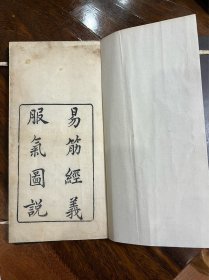 易筋經義
服氣圖説